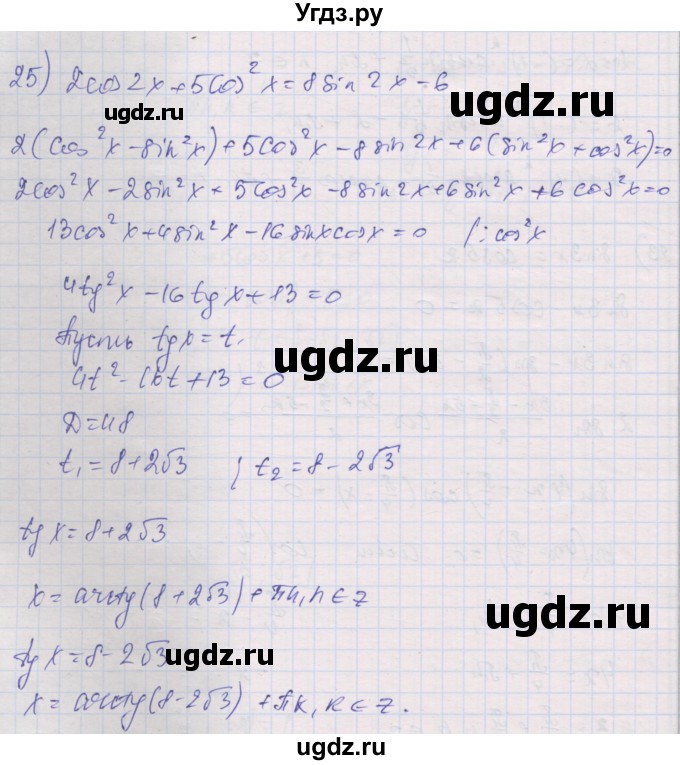 Угдз.ру
25) 2cos 2x + 5cos²x = 8sin 2x - 6
ugdz.ru
2(cos²x - sin²x) + 5cos²x - 8sin2x + 6(sin²x + cos²x) = 0
2cos²x - 2sin²x + 5cos²x - 8sin2x + 6sin²x + 6cos²x = 0
13cos²x + 4sin²x - 16sinxcosx = 0 /: cos²x
4tg²x - 16tgx + 13 = 0
ugdz.ru
Пусть tgx = t.
4t² - 16t + 13 = 0
D = 48
t₁ = 8 + 2√3 ; t₂ = 8 - 2√3
tg x = 8 + 2√3
x = arctg(8 + 2√3) + πn, n ∈ z
ugdz.ru
tg x = 8 - 2√3
ugdz.ru
x = arctg(8 - 2√3) + πk, k ∈ z.
ugdz.ru